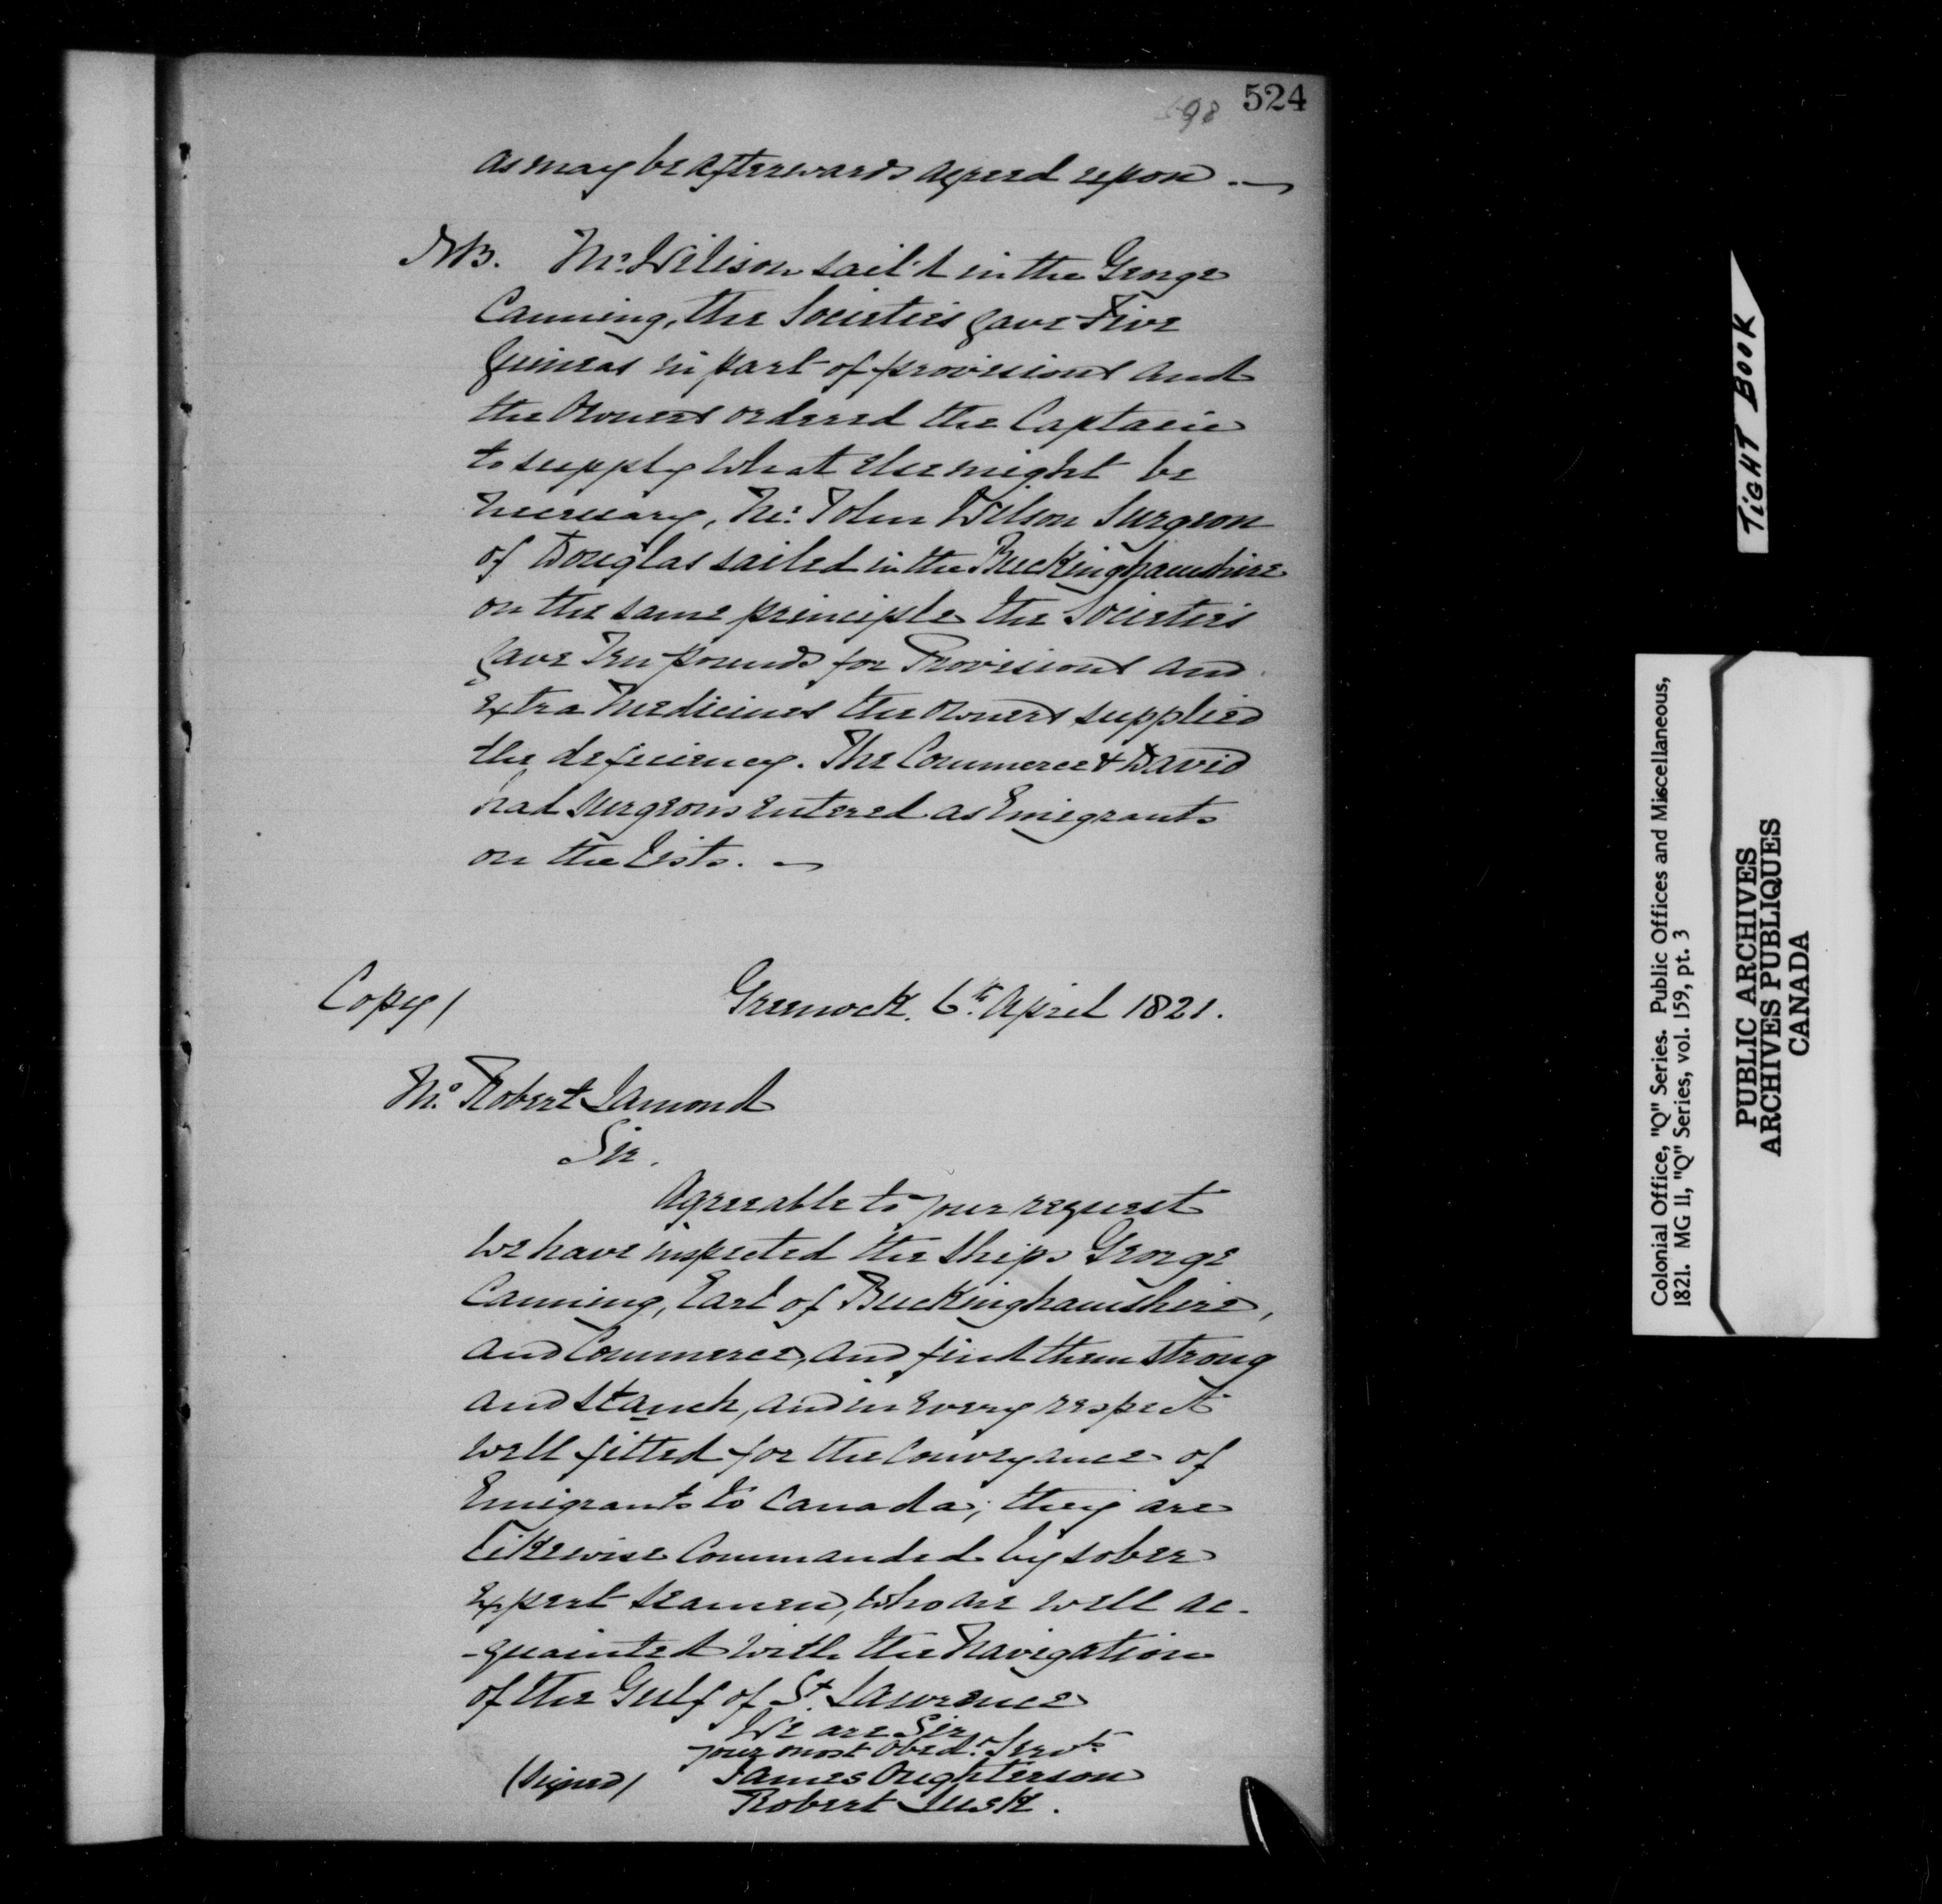 524
598
as may be afterwards agreed upon. —
NB. Mr. Wilson sail'd in the George
Canning, the Societies gave Five
Guineas in part of provisions and
the Owners ordered the Captain
to supply what else might be
necessary, Mr. John Wilson Surgeon
of Douglas sailed in the Buckinghamshire
on the same principle the Societies
gave Ten pounds for Provisions and
extra Medicines the owners supplied
the deficiency. The Commerce & David
had surgeons entered as Emigrants
on the Lists. —
Copy/
Greenock. 6th. April 1821.
Mr. Robert Lamond
Sir.
Agreeable to your request
we have inspected the ships George
Canning, Earl of Buckinghamshire,
and Commerce, and find them strong
and stanch, and in every respect
well fitted for the Conveyance of
Emigrants to Canada; they are
likewise Commanded by sober
expert seamen, who are well ac-
-quainted with the Navigation
of the Gulf of St. Lawrence
We are Sir
your most obedt. Servts.
(signed) James Oughterson
Robert Lusk.
TIGHT BOOK
Colonial Office, "Q" Series. Public Offices and Miscellaneous,
1821. MG 11, "Q" Series, vol. 159, pt. 3
PUBLIC ARCHIVES
ARCHIVES PUBLIQUES
CANADA